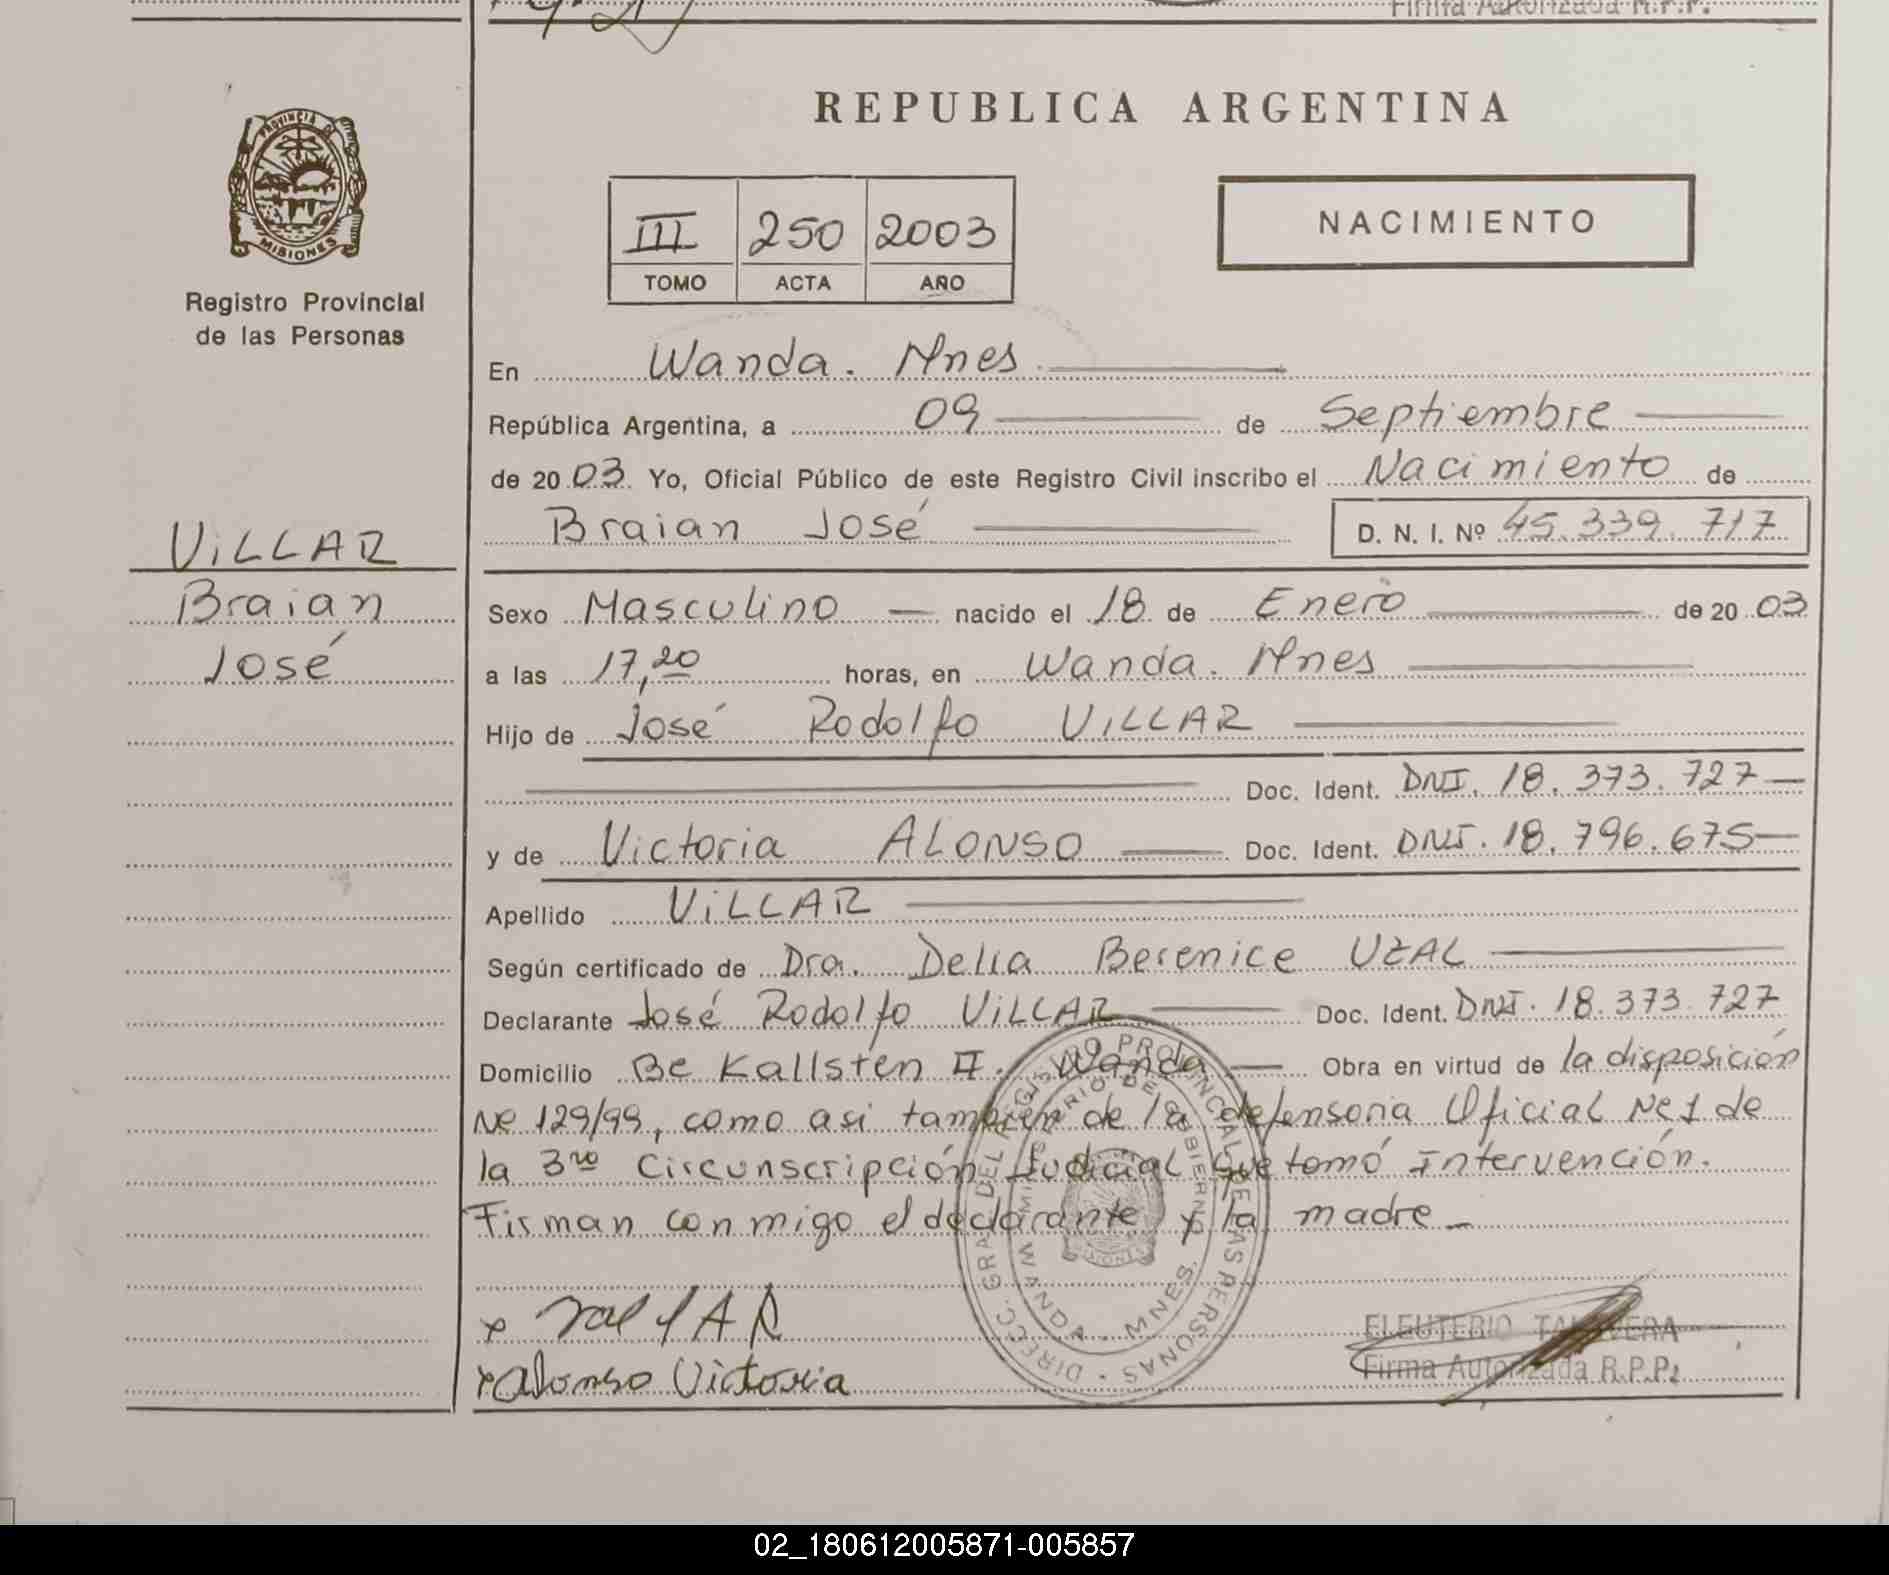 Firma Autorizada R.P.P.
REPUBLICA ARGENTINA
PROVINCIA DE MISIONES
Registro Provincial
de las Personas
III 250 2003
TOMO ACTA AÑO
NACIMIENTO
En Wanda. Mnes
República Argentina, a 09 de Septiembre
de 2003. Yo, Oficial Público de este Registro Civil inscribo el Nacimiento de
Braian José D. N. I. Nº 45.339.717
VILLAR
Braian
José
Sexo Masculino — nacido el 18 de Enero de 2003
a las 17,20 horas, en Wanda. Mnes
Hijo de José Rodolfo VILLAR
Doc. Ident. DNI. 18.373.727—
y de Victoria ALONSO — Doc. Ident. DNI. 18.796.675—
Apellido VILLAR
Según certificado de Dra. Delia Berenice UZAL
Declarante José Rodolfo VILLAR — Doc. Ident. DNI. 18.373.727
Domicilio Be Kallsten II. Wanda — Obra en virtud de la disposición
Nº 129/99, como asi tambien de la defensoria Oficial Nº1 de
la 3ra Circunscripción Judicial que tomó Intervención.
Firman conmigo el declarante y la madre—
DIRECC. GRAL. DEL REGISTRO PROVINCIAL DE LAS PERSONAS
MINISTERIO DE GOBIERNO
WANDA - MNES.
x
x Alonso Victoria
ELEUTERIO TALAVERA
Firma Autorizada R.P.P.
02_180612005871-005857